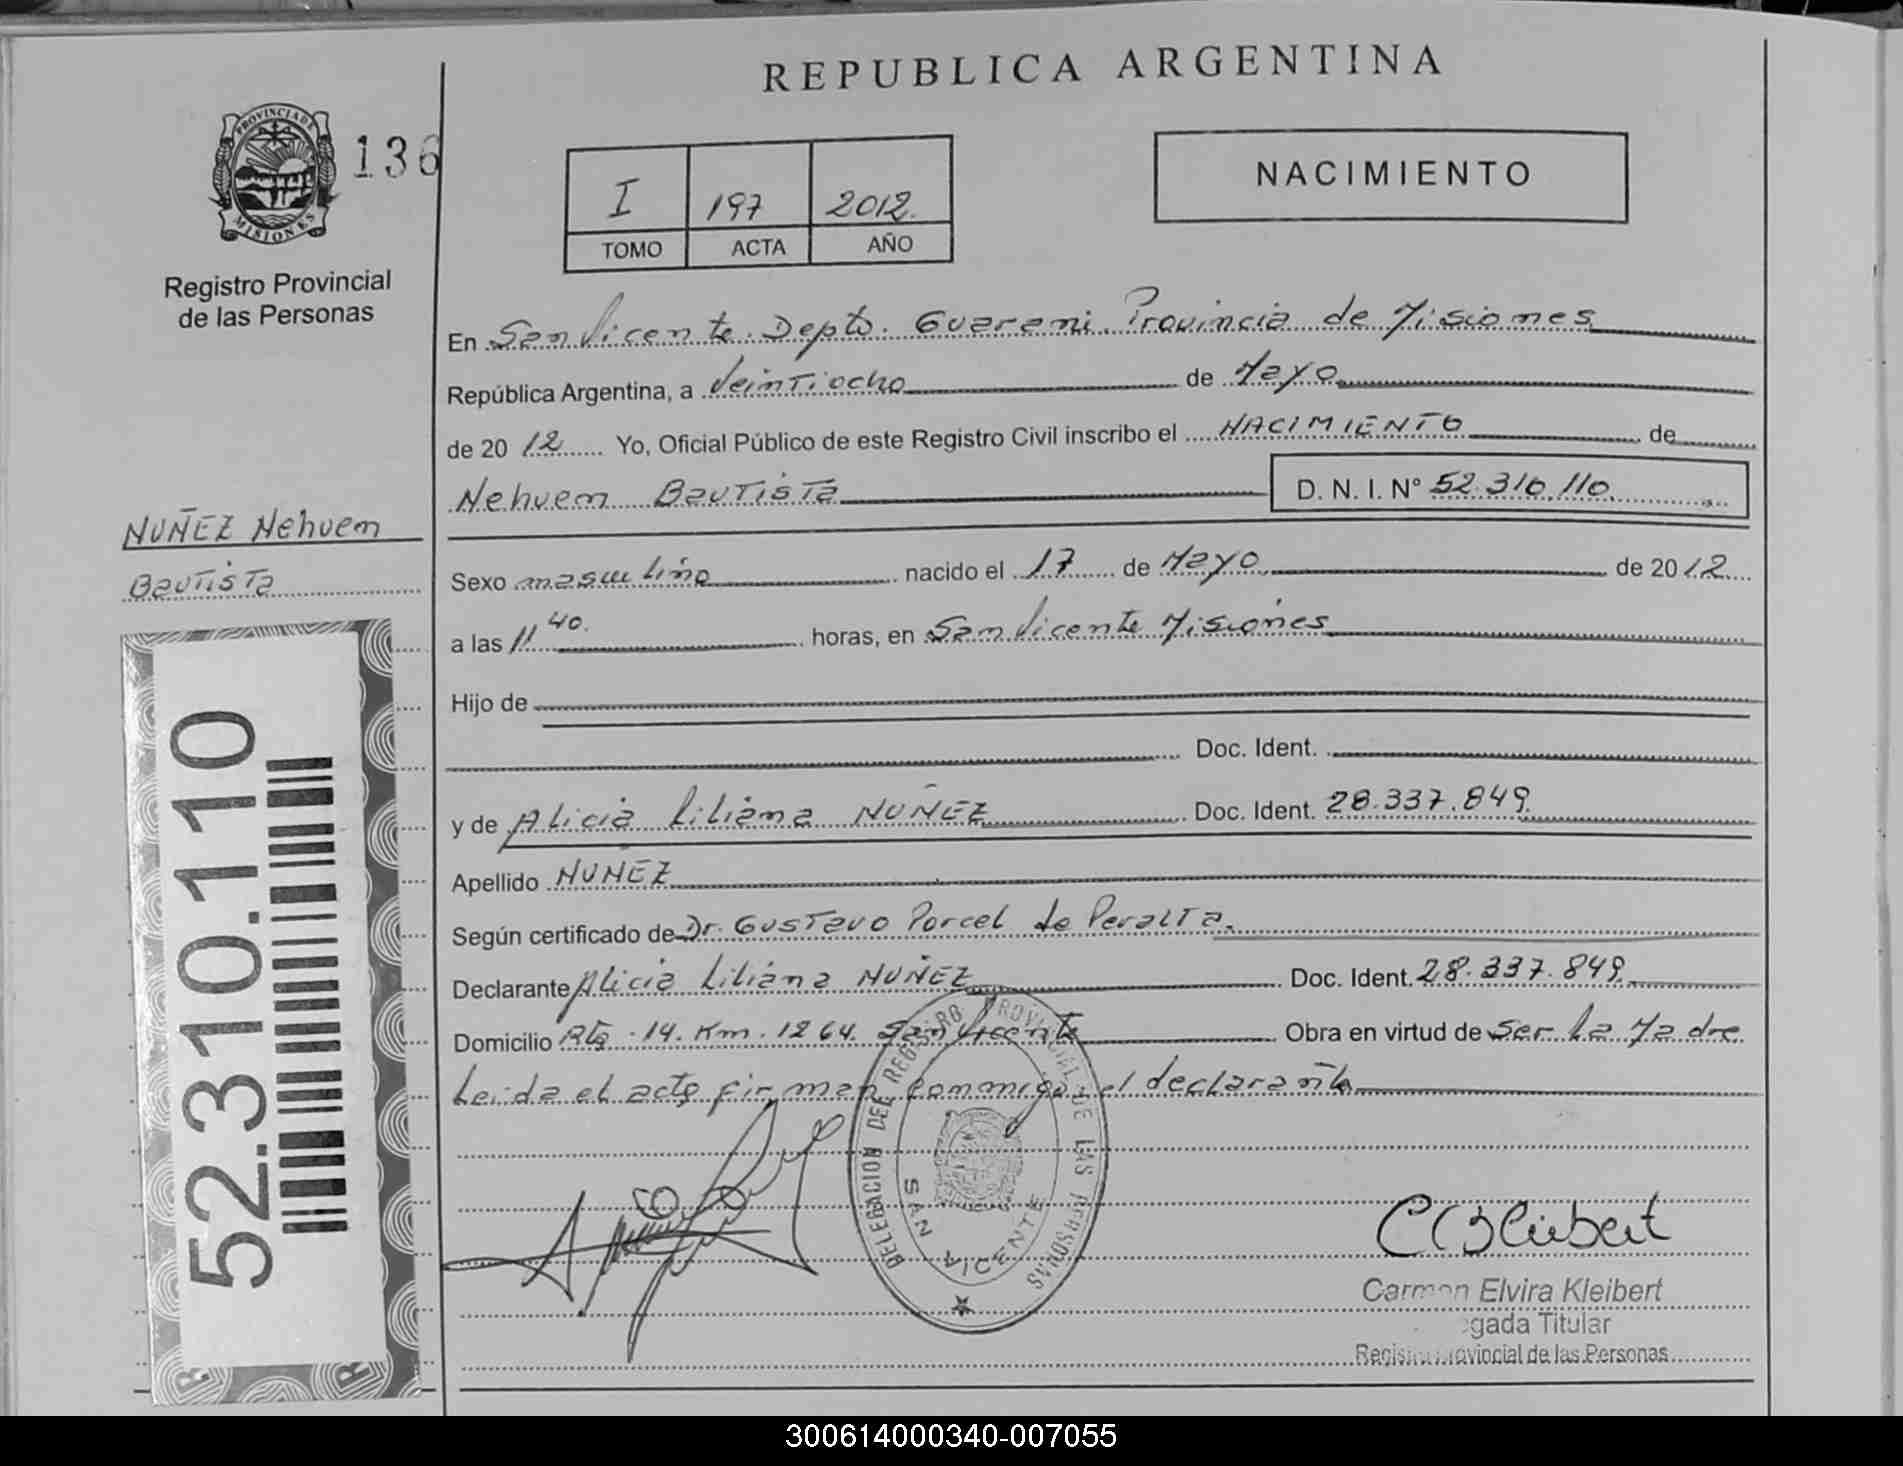 REPUBLICA ARGENTINA
PROVINCIA DE
MISIONES
136
Registro Provincial
de las Personas
I 197 2012.
TOMO ACTA AÑO
NACIMIENTO
En San Vicente Depto. Guarani. Provincia de Misiones
República Argentina, a Veintiocho de Mayo
de 20 12 Yo, Oficial Público de este Registro Civil inscribo el NACIMIENTO de
Nehuem Bautista D. N. I. N° 52.310.110
NUÑEZ Nehuem
Bautista
Sexo masculino nacido el 17 de Mayo de 2012
a las 11 40. horas, en San Vicente Misiones
Hijo de
Doc. Ident.
y de Alicia Liliana NUÑEZ Doc. Ident. 28.337.849.
Apellido NUÑEZ
Según certificado de Dr. Gustavo Porcel de Peralta.
Declarante Alicia Liliana NUÑEZ Doc. Ident. 28.337.849.
Domicilio Rta. 14. Km. 1264. San Vicente Obra en virtud de Ser La Madre
Leida el acta firman conmigo el declarante
52.310.110
DELEGACION DEL REGISTRO PROVINCIAL DE LAS PERSONAS
SAN VICENTE
Carmen Elvira Kleibert
gada Titular
Registro Provincial de las Personas
300614000340-007055